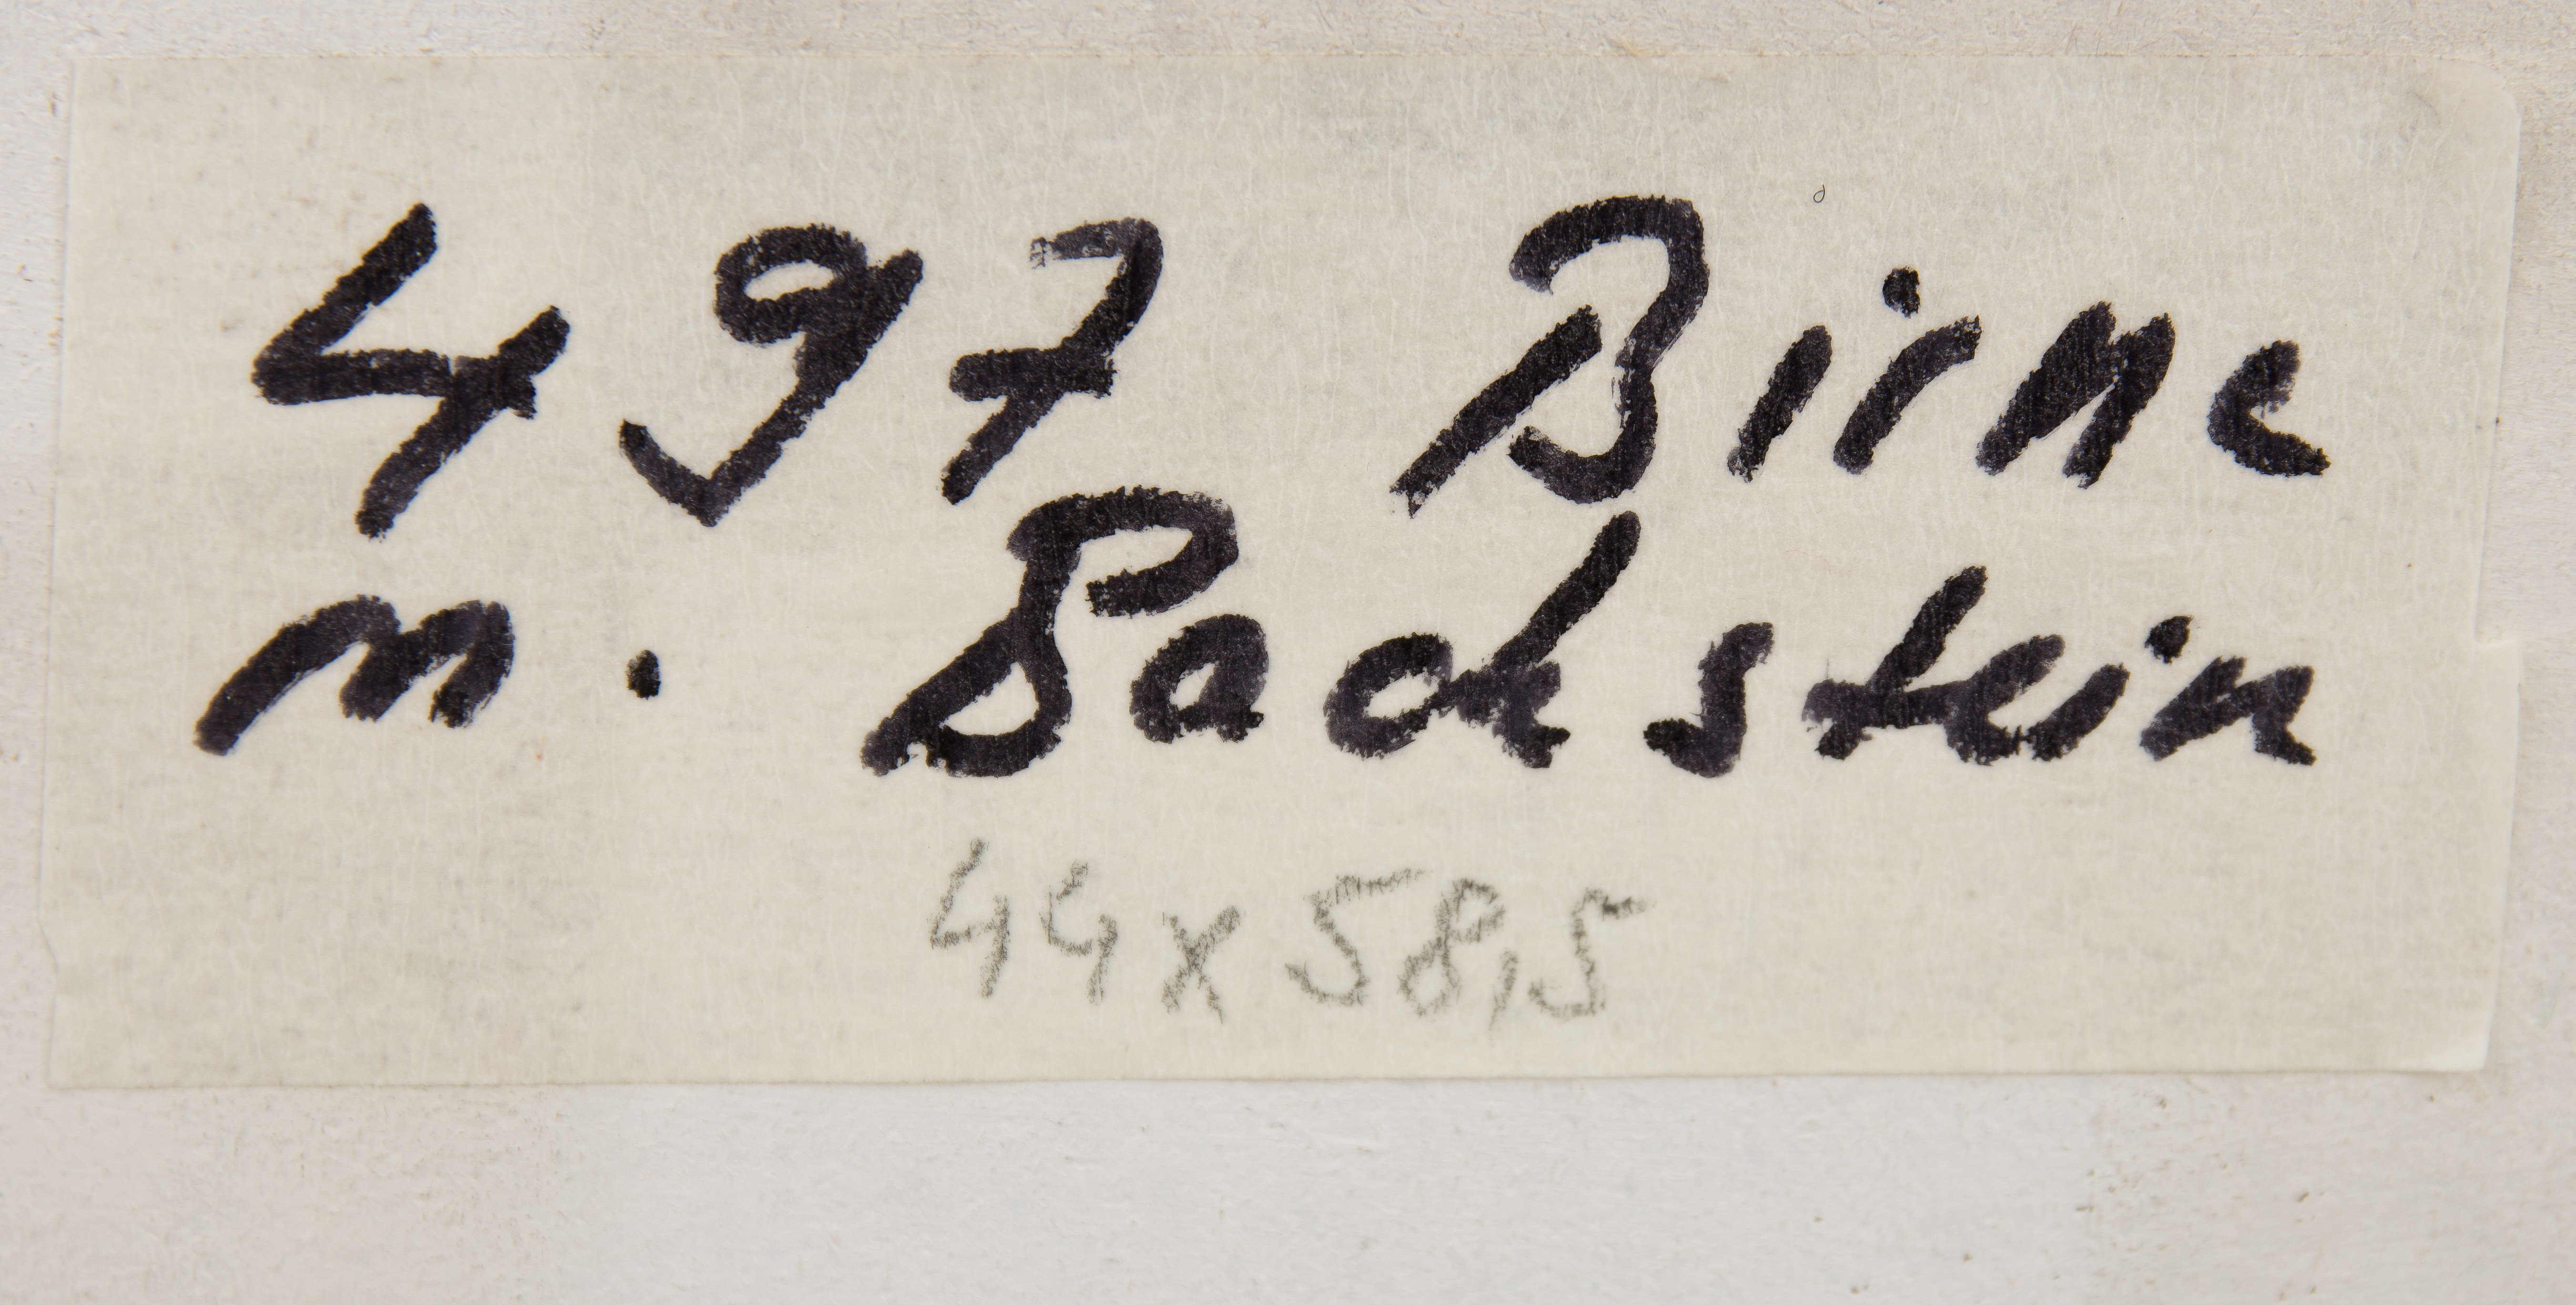 497 Birne
m. Backstein
44x58,5